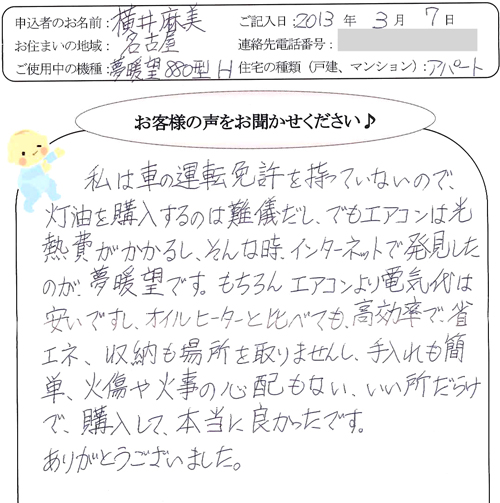 申込者のお名前：横井麻美
ご記入日：2013 年 3 月 7 日
お住まいの地域：名古屋
連絡先電話番号：
ご使用中の機種：夢暖望880型H
住宅の種類（戸建、マンション）：アパート
お客様の声をお聞かせください♪
私は車の運転免許を持っていないので、
灯油を購入するのは難儀だし、でもエアコンは光
熱費がかかるし、そんな時、インターネットで発見した
のが、夢暖望です。もちろん エアコンより電気代は
安いですし、オイルヒーターと比べても、高効率で、省
エネ、収納も場所を取りませんし、手入れも簡
単、火傷や火事の心配もない、いい所だらけ
で、購入して、本当に良かったです。
ありがとうございました。